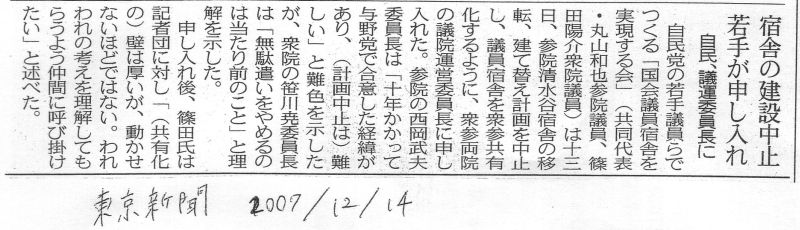 宿舎の建設中止
若手が申し入れ
自民、議運委員長に
自民党の若手議員らで
つくる「国会議員宿舎を
実現する会」（共同代表
・丸山和也参院議員、篠
田陽介衆院議員）は十三
日、参院清水谷宿舎の移
転、建て替え計画を中止
し、議員宿舎を衆参共有
化するように、衆参両院
の議院運営委員長に申し
入れた。参院の西岡武夫
委員長は「十年かかって
与野党で合意した経緯が
あり、（計画中止は）難
しい」と難色を示した
が、衆院の笹川堯委員長
は「無駄遣いをやめるの
は当たり前のこと」と理
解を示した。
申し入れ後、篠田氏は
記者団に対し「（共有化
の）壁は厚いが、動かせ
ないほどではない。われ
われの考えを理解しても
らうよう仲間に呼び掛け
たい」と述べた。
東京新聞 2007/12/14